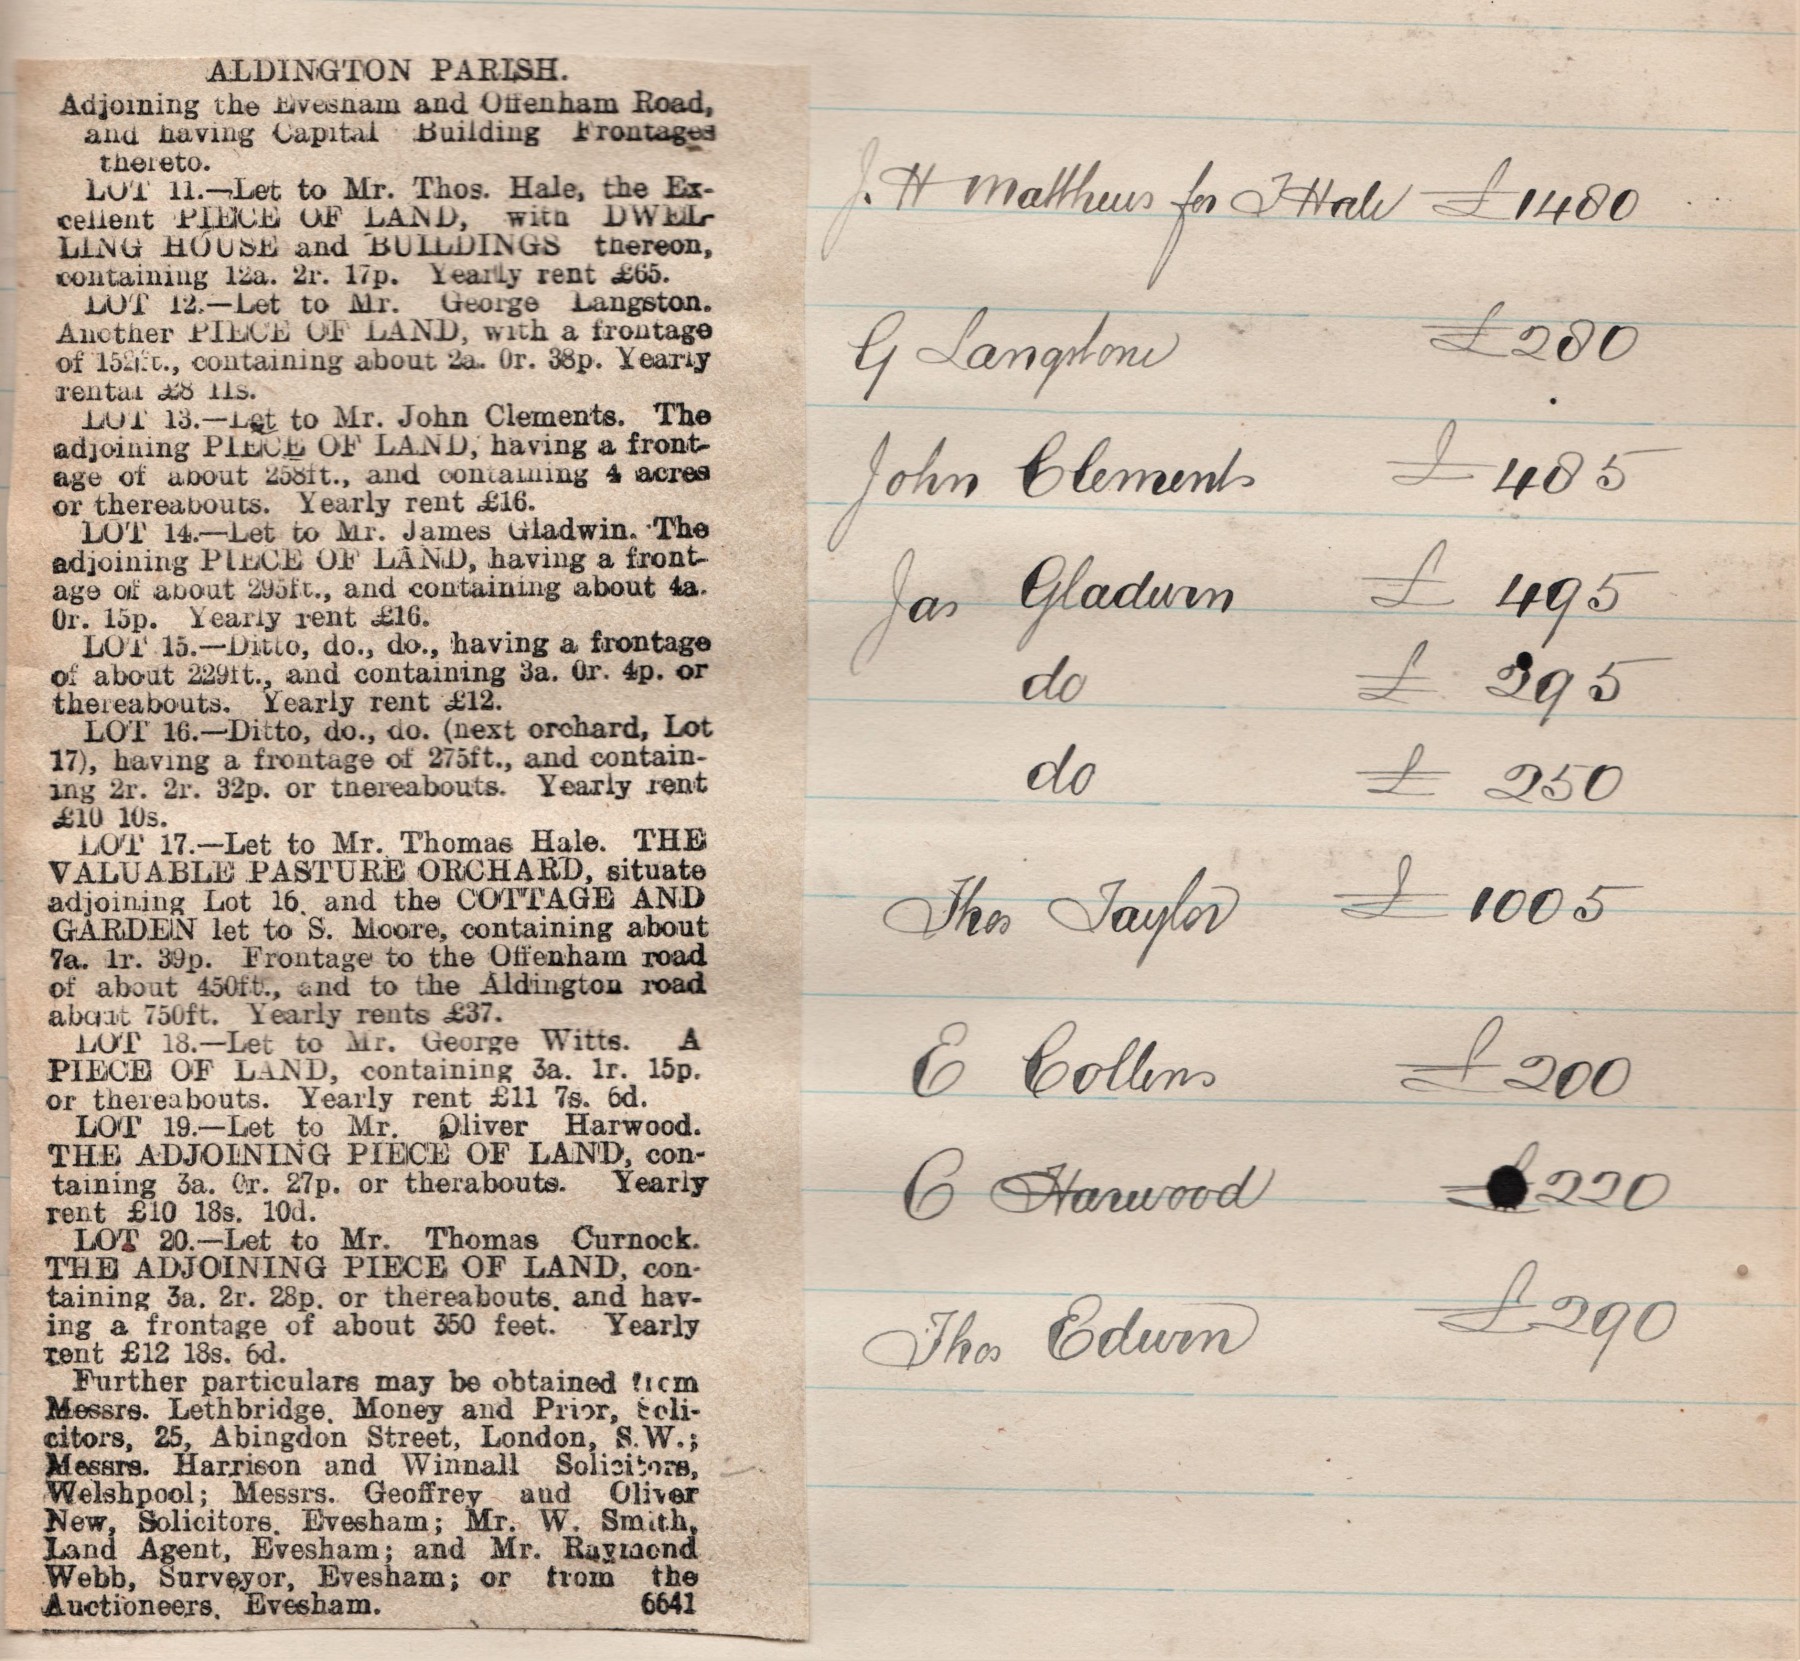 ALDINGTON PARISH.
Adjoining the Evesham and Offenham Road,
and having Capital Building Frontages
thereto.
LOT 11.—Let to Mr. Thos. Hale, the Ex-
cellent PIECE OF LAND, with DWEL-
LING HOUSE and BUILDINGS thereon,
containing 12a. 2r. 17p. Yearly rent £65.
LOT 12.—Let to Mr. George Langston.
Another PIECE OF LAND, with a frontage
of 152ft., containing about 2a. 0r. 38p. Yearly
rental £8 11s.
LOT 13.—Let to Mr. John Clements. The
adjoining PIECE OF LAND, having a front-
age of about 258ft., and containing 4 acres
or thereabouts. Yearly rent £16.
LOT 14.—Let to Mr. James Gladwin. The
adjoining PIECE OF LAND, having a front-
age of about 295ft., and containing about 4a.
0r. 15p. Yearly rent £16.
LOT 15.—Ditto, do., do., having a frontage
of about 229ft., and containing 3a. 0r. 4p. or
thereabouts. Yearly rent £12.
LOT 16.—Ditto, do., do. (next orchard, Lot
17), having a frontage of 275ft., and contain-
ing 2r. 2r. 32p. or thereabouts. Yearly rent
£10 10s.
LOT 17.—Let to Mr. Thomas Hale. THE
VALUABLE PASTURE ORCHARD, situate
adjoining Lot 16, and the COTTAGE AND
GARDEN let to S. Moore, containing about
7a. 1r. 39p. Frontage to the Offenham road
of about 450ft., and to the Aldington road
about 750ft. Yearly rents £37.
LOT 18.—Let to Mr. George Witts. A
PIECE OF LAND, containing 3a. 1r. 15p.
or thereabouts. Yearly rent £11 7s. 6d.
LOT 19.—Let to Mr. Oliver Harwood.
THE ADJOINING PIECE OF LAND, con-
taining 3a. 0r. 27p. or therabouts. Yearly
rent £10 18s. 10d.
LOT 20.—Let to Mr. Thomas Curnock.
THE ADJOINING PIECE OF LAND, con-
taining 3a. 2r. 28p. or thereabouts, and hav-
ing a frontage of about 350 feet. Yearly
rent £12 18s. 6d.
Further particulars may be obtained from
Messrs. Lethbridge, Money and Prior, Soli-
citors, 25, Abingdon Street, London, S.W.;
Messrs. Harrison and Winnall Solicitors,
Welshpool; Messrs. Geoffrey and Oliver
New, Solicitors, Evesham; Mr. W. Smith,
Land Agent, Evesham; and Mr. Raymond
Webb, Surveyor, Evesham; or from the
Auctioneers, Evesham. 6641
J. H Matthews for T Hale £1480
G Langstone £280
John Clements £485
Jas Gladwin £495
do £295
do £250
Thos Taylor £1005
E Collins £200
C Harwood £220
Thos Edwin £290